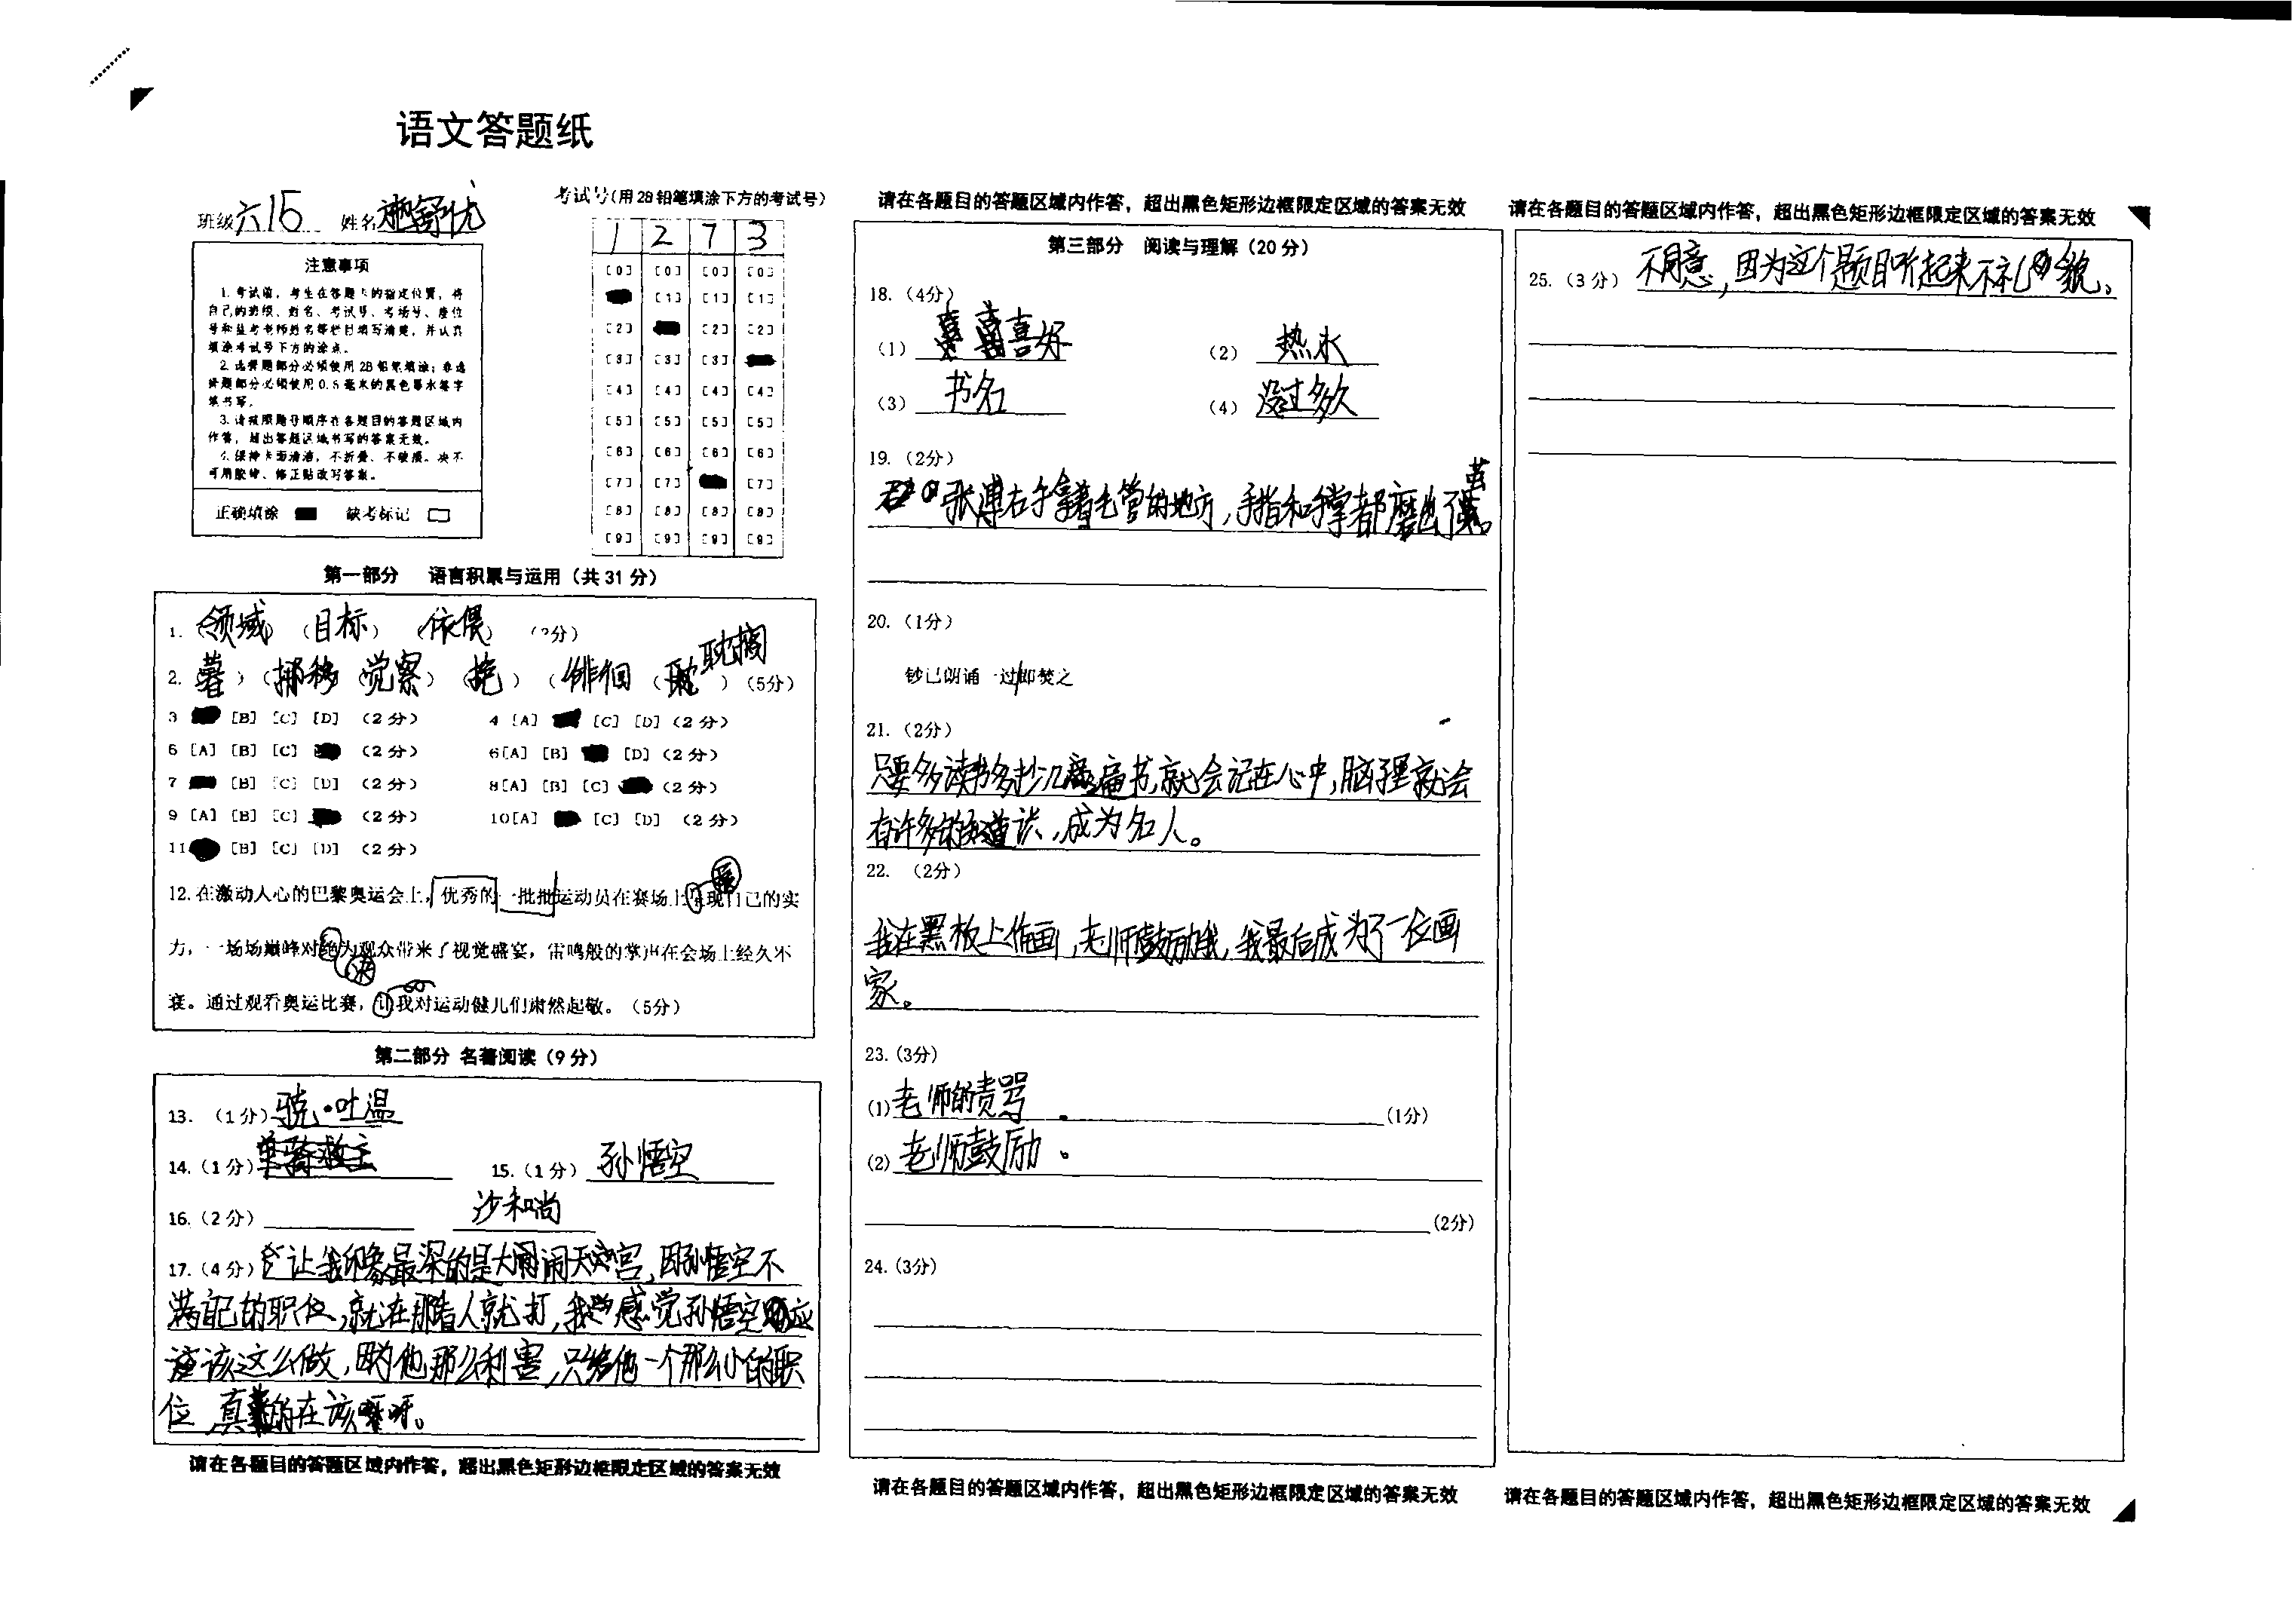 语文答题纸
班级 六15 姓名 施舒优
考试号(用2B铅笔填涂下方的考试号)
1 2 7 3
注意事项
1.考试前,考生在答题卡的指定位置,将
自己的班级、姓名、考试号、考场号、座位
号和监考老师姓名等栏目填写清楚,并认真
填涂考试号下方的涂点。
2.选择题部分必须使用2B铅笔填涂;非选
择题部分必须使用0.5毫米的黑色墨水签字
笔书写。
3.请按照题号顺序在各题目的答题区域内
作答,超出答题区域书写的答案无效。
4.保持卡面清洁,不折叠、不破损。决不
可用胶带、修正贴改写答案。
正确填涂 缺考标记
[0] [0] [0] [0]
[1] [1] [1]
[2] [2] [2]
[3] [3] [3]
[4] [4] [4] [4]
[5] [5] [5] [5]
[6] [6] [6] [6]
[7] [7] [7]
[8] [8] [8] [8]
[9] [9] [9] [9]
第一部分 语言积累与运用(共31分)
1. (领域) (目标) (依偎) (3分)
2. (蓦) (挪移) (觉察) (挠) (徘徊) (耽搁) (5分)
3 [B] [C] [D] (2分) 4 [A] [C] [D] (2分)
5 [A] [B] [C] (2分) 6[A] [B] [D] (2分)
7 [B] [C] [D] (2分) 8[A] [B] [C] (2分)
9 [A] [B] [C] (2分) 10[A] [C] [D] (2分)
11 [B] [C] [D] (2分)
展
12.在激动人心的巴黎奥运会上,优秀的一批批运动员在赛场上现自己的实
力,一场场巅峰对绝为观众带来了视觉盛宴,雷鸣般的掌声在会场上经久不
决
衰。通过观看奥运比赛,让我对运动健儿们肃然起敬。(5分)
第二部分 名著阅读(9分)
13. (1分) 骁·吐温
14. (1分) 单骑救主 15. (1分) 孙悟空
16. (2分) 沙和尚
17. (4分) 让我印象最深的是大闹天宫,因孙悟空不
满自己的职位,就在那看人就打,我感觉孙悟空应
该这么做,因为他那么利害,只给他一个那么小的职
位,真的在该呀。
请在各题目的答题区域内作答,超出黑色矩形边框限定区域的答案无效
请在各题目的答题区域内作答,超出黑色矩形边框限定区域的答案无效
第三部分 阅读与理解(20分)
18. (4分)
(1) 喜好 (2) 热水
(3) 书名 (4) 没过多久
19. (2分)
张溥右手拿着毛管的地方,手指和手掌都磨出了茧。
20. (1分)
钞已朗诵一过即焚之
21. (2分)
只要多读书多抄几遍书,就会记在心中,脑子里就会
有许多的知道识,成为名人。
22. (2分)
我在黑板上作画,老师鼓励我,我最后成为了一位画
家。
23. (3分)
(1) 老师的责骂. (1分)
(2) 老师鼓励。
(2分)
24. (3分)
请在各题目的答题区域内作答,超出黑色矩形边框限定区域的答案无效
请在各题目的答题区域内作答,超出黑色矩形边框限定区域的答案无效
25. (3分) 不同意,因为这个题目听起来不礼貌。
请在各题目的答题区域内作答,超出黑色矩形边框限定区域的答案无效